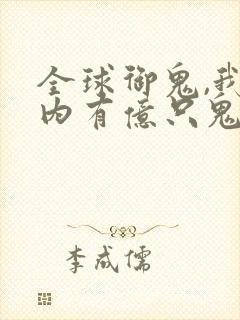 全球御鬼,我
内有億只鬼
李成儒